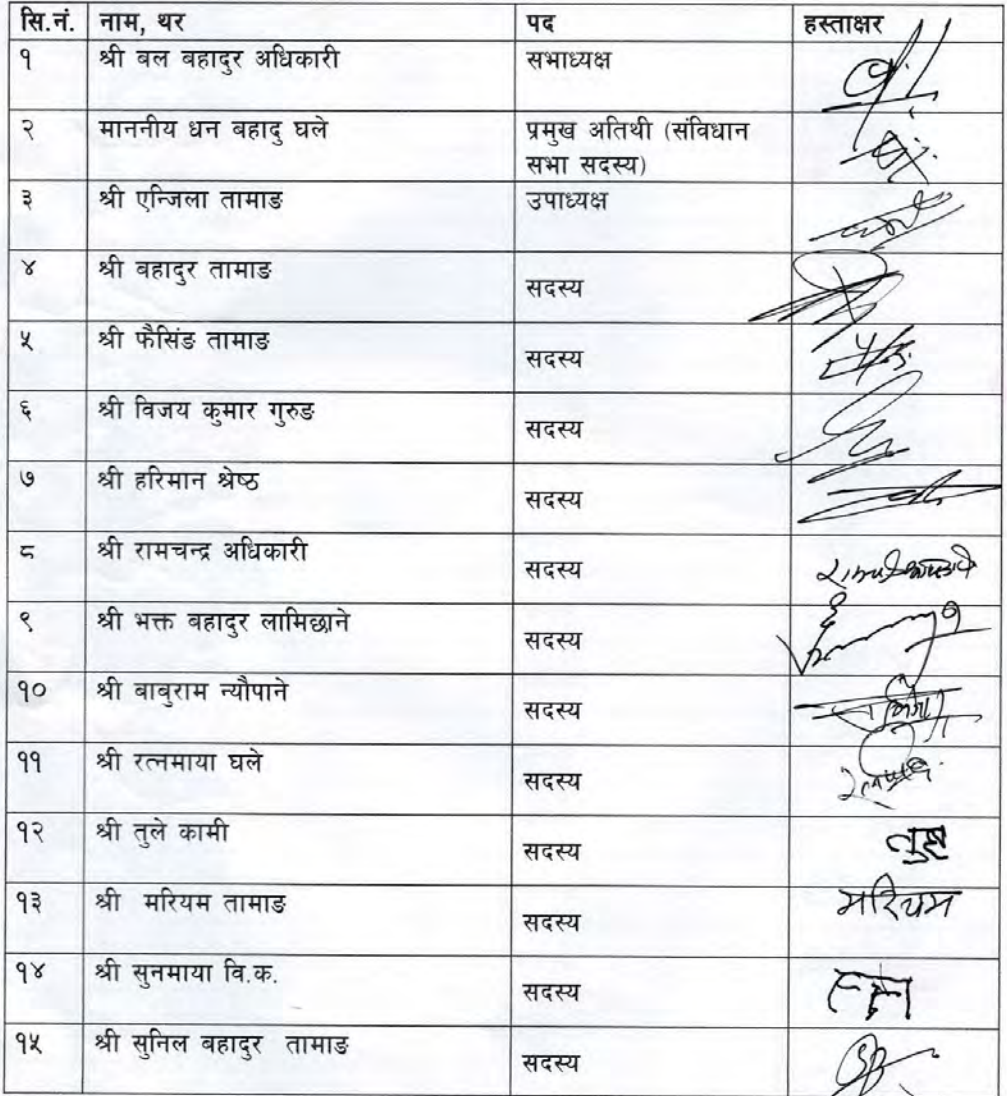 सि.नं. नाम, थर पद हस्ताक्षर
१ श्री बल बहादुर अधिकारी सभाध्यक्ष
२ माननीय धन बहादु घले प्रमुख अतिथी (संविधान
सभा सदस्य)
३ श्री एन्जिला तामाङ उपाध्यक्ष
४ श्री बहादुर तामाङ सदस्य
५ श्री फैसिंङ तामाङ सदस्य
६ श्री विजय कुमार गुरुङ सदस्य
७ श्री हरिमान श्रेष्ठ सदस्य
८ श्री रामचन्द्र अधिकारी सदस्य
९ श्री भक्त बहादुर लामिछाने सदस्य
१० श्री बाबुराम न्यौपाने सदस्य
११ श्री रत्नमाया घले सदस्य
१२ श्री तुले कामी सदस्य
१३ श्री मरियम तामाङ सदस्य मरियम
१४ श्री सुनमाया वि.क. सदस्य
१५ श्री सुनिल बहादुर तामाङ सदस्य